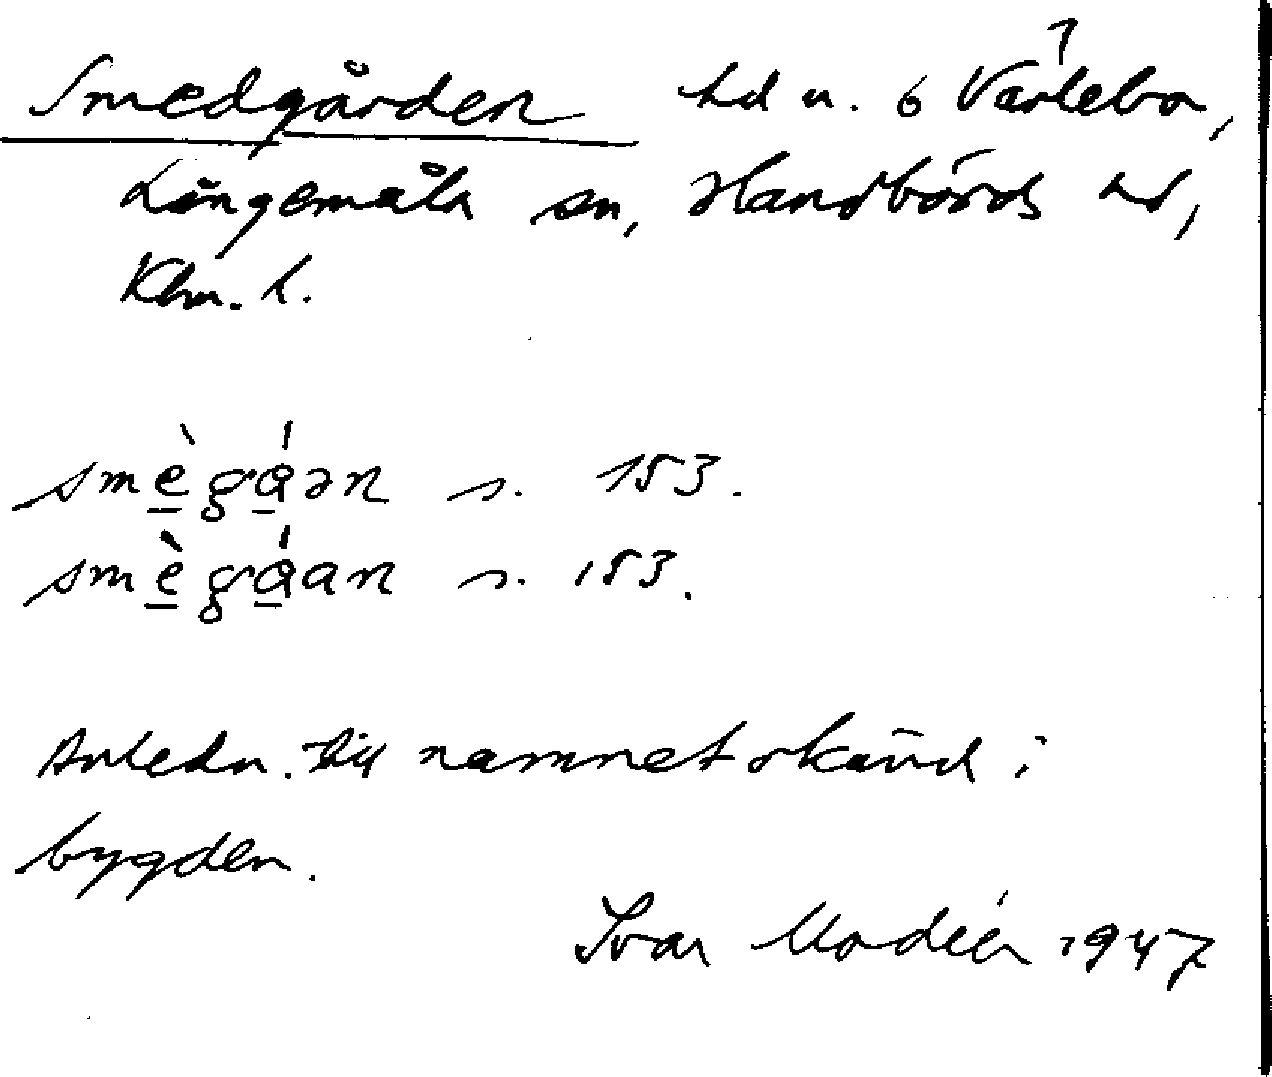 Smedgården hd n. 6 Värlebo,
Långemåla sn, Handbörds hd,
Klm. l.
smègáən s. 153.
smègáan s. 153.
Anledn. till namnet okänd i
bygden.
Ivar Modéer 1947